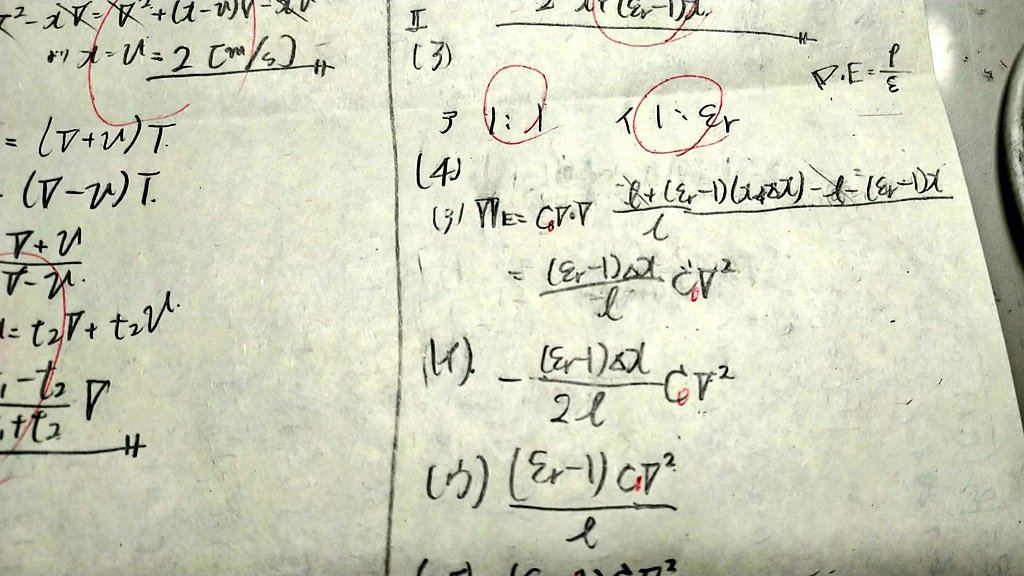 ∴ x = u = 2 [m/s]
= (V+u)T.
(V-u)T.
V+u
V-u.
= t₂V + t₂u.
t₁-t₂ V
t₁+t₂
II
(3)
∇·E = ρ/ε
ア 1:1 イ 1:εr
(4)
(ア) W_E = C₀V·V (l+(εr-1)(x+Δx)-l-(εr-1)x)/l
= (εr-1)Δx/l C₀V²
(イ). - (εr-1)Δx/2l C₀V²
(ウ) (εr-1)C₀V²/l